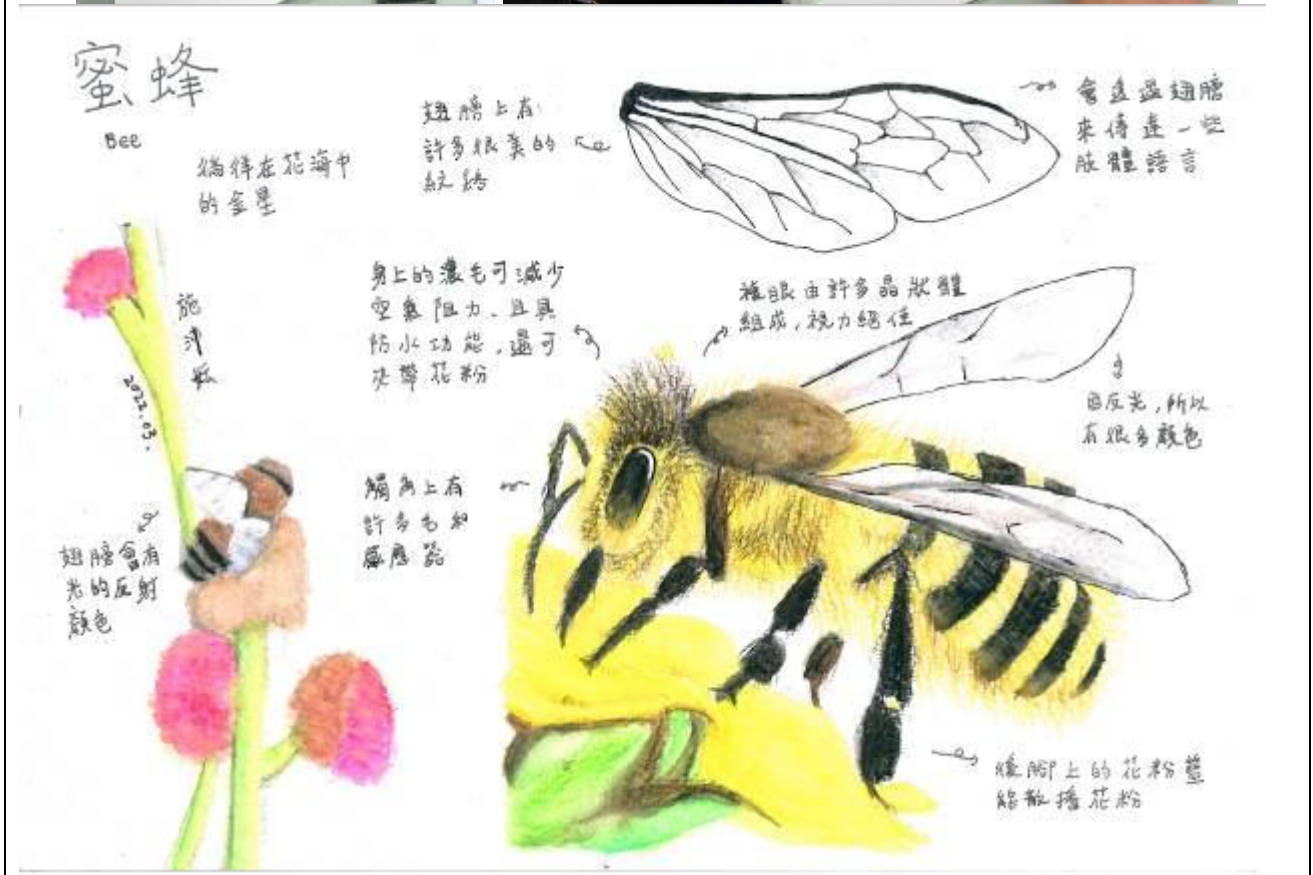 蜜蜂
Bee
徜徉在花海中
的金星
翅膀上有
許多很美的
紋路
會透過翅膀
來傳達一些
肢體語言
身上的濃毛可減少
空氣阻力、且具
防水功能,還可
夾帶花粉
複眼由許多晶狀體
組成,視力絕佳
因反光,所以
有很多顏色
施
2022.03.
觸角上有
許多毛和
感應器
翅膀會有
光的反射
顏色
後腳上的花粉籃
能散播花粉